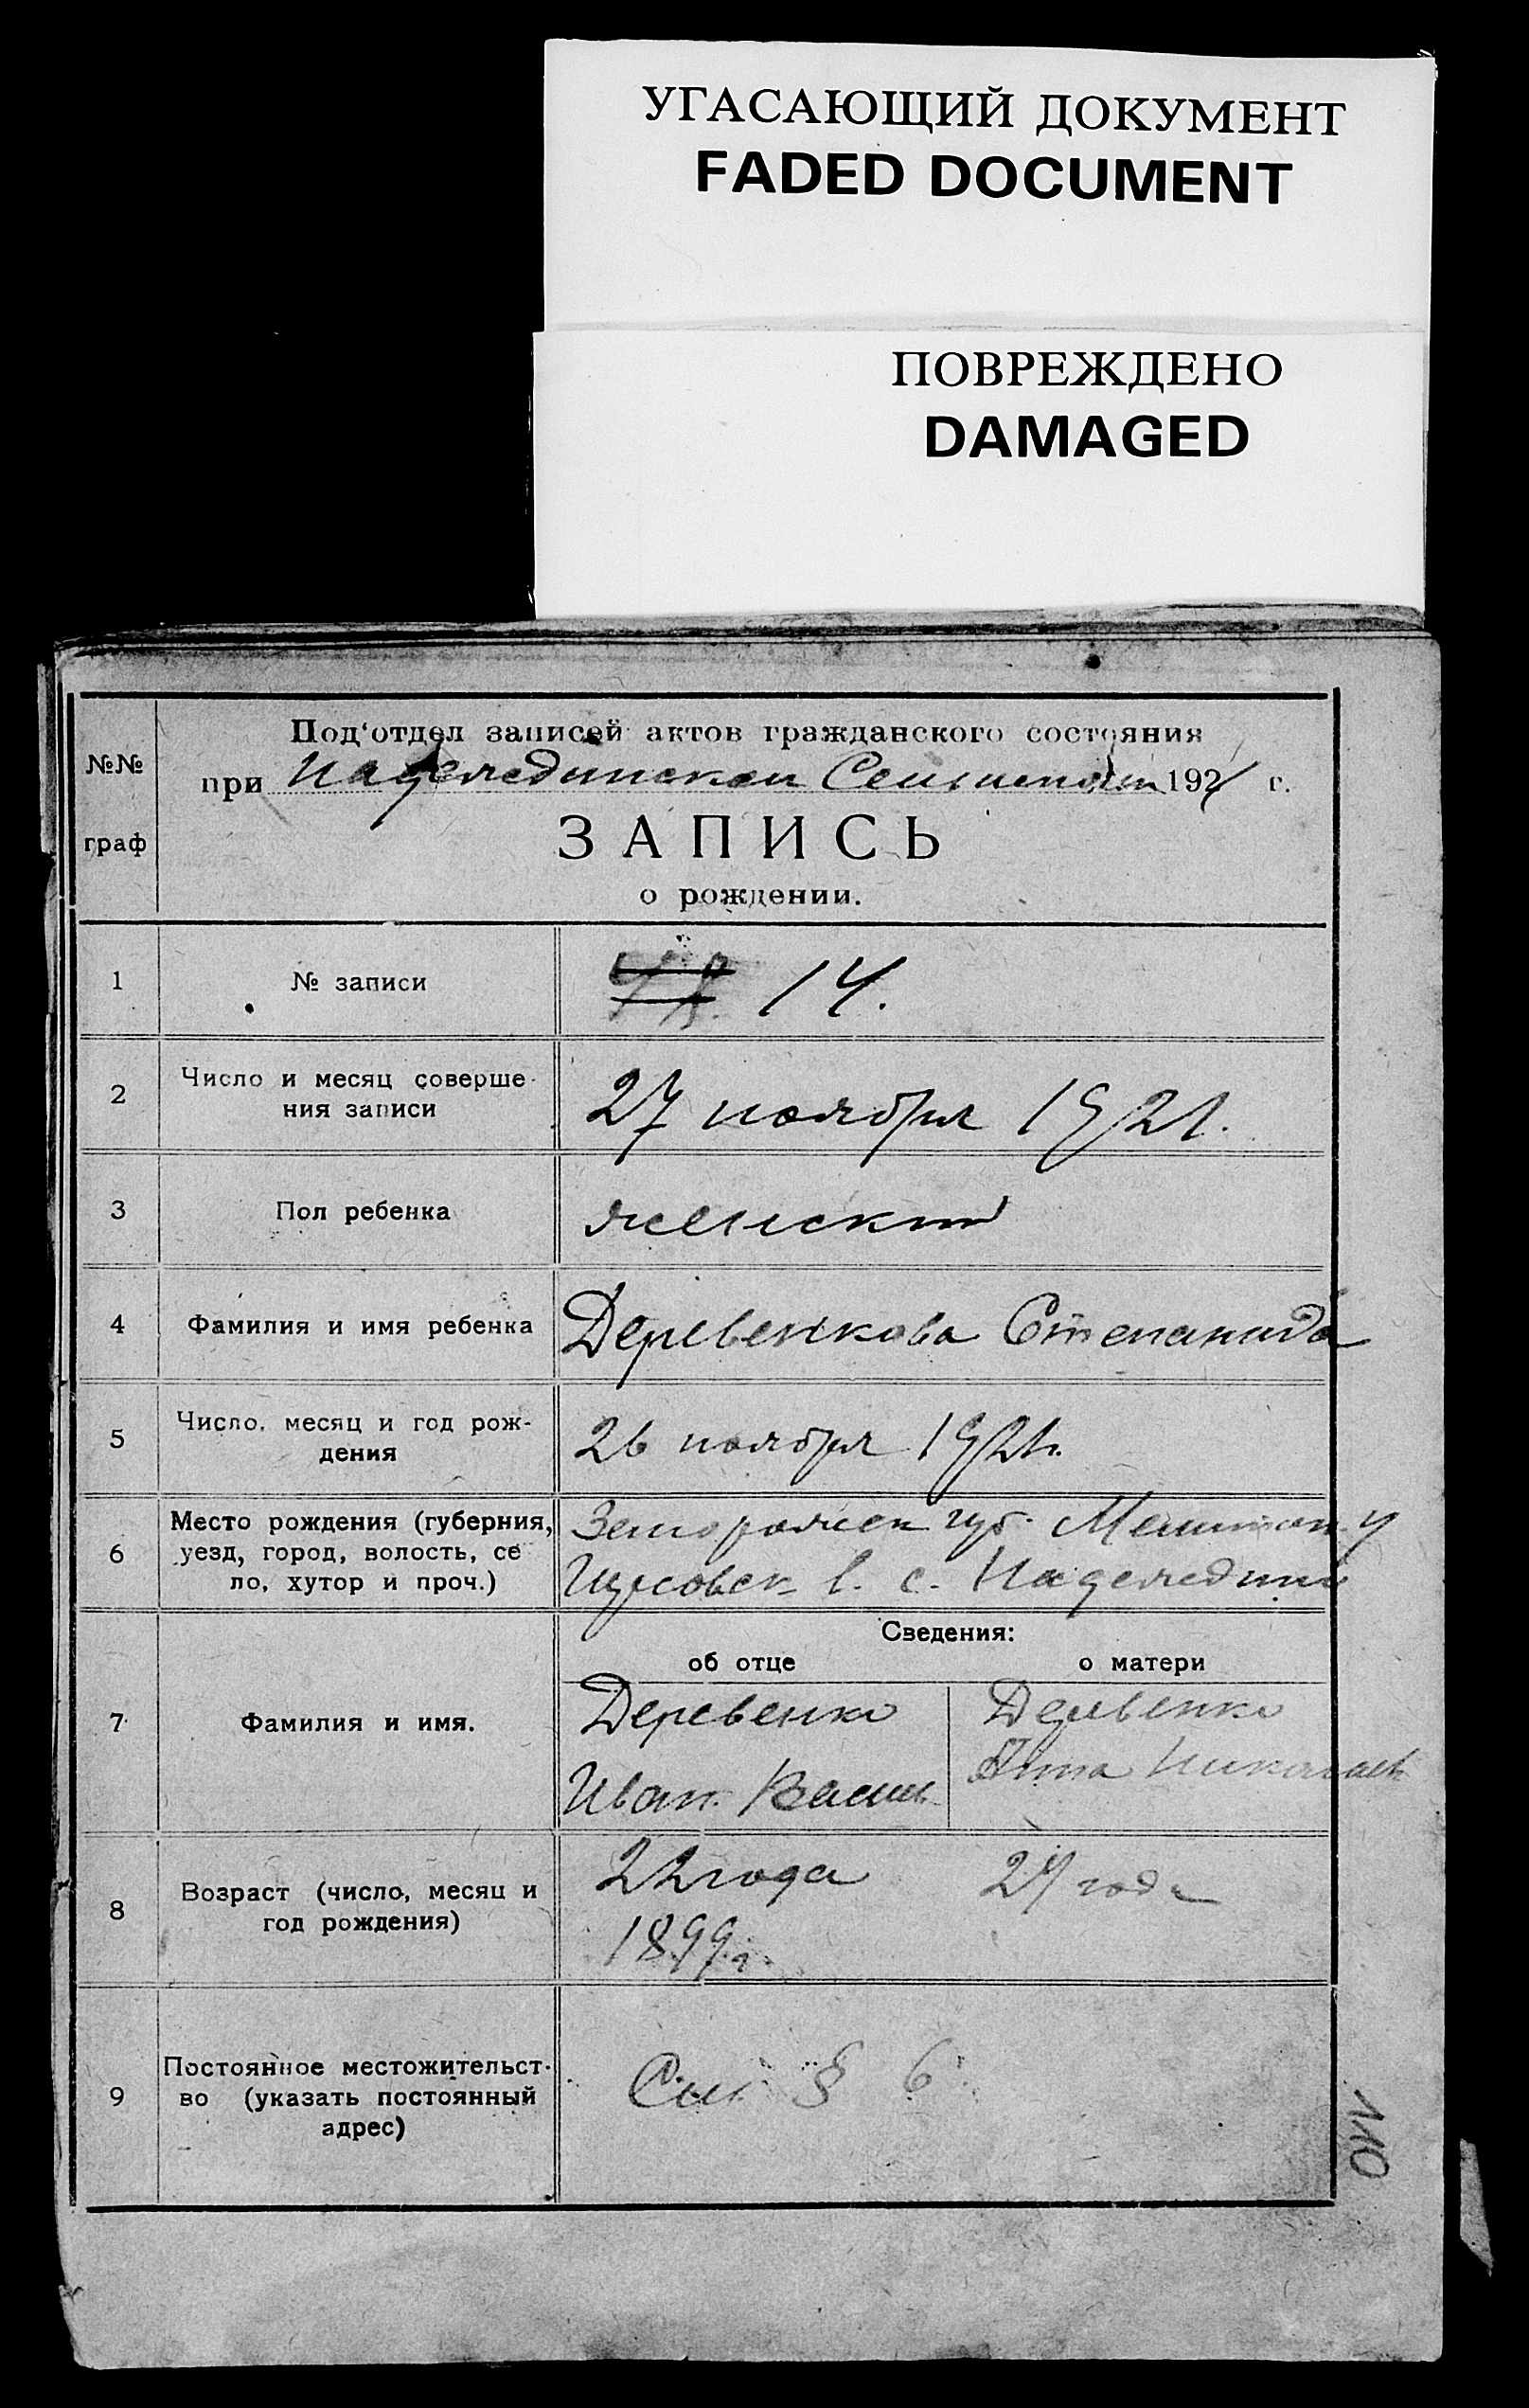 УГАСАЮЩИЙ ДОКУМЕНТ
FADED DOCUMENT
ПОВРЕЖДЕНО
DAMAGED
Под‘отдел записей актов гражданского состояния
№№
при 1921 г.
граф
ЗАПИСЬ
о рождении.
1 № записи 14.
2 Число и месяц соверше-
ния записи 27 ноября 1921.
3 Пол ребенка женский
4 Фамилия и имя ребенка Деревенкова Степанида
5 Число, месяц и год рож-
дения 26 ноября 1921г.
6 Место рождения (губерния, губ.
уезд, город, волость, се
ло, хутор и проч.) в. с.
Сведения:
об отце о матери
7 Фамилия и имя. Деревенко Деревенко
Иван Васил Анна Николаев
8 Возраст (число, месяц и 22 года 24 года
год рождения) 1899 г.
9 Постоянное местожительст-
во (указать постоянный См. § 6
адрес)
110